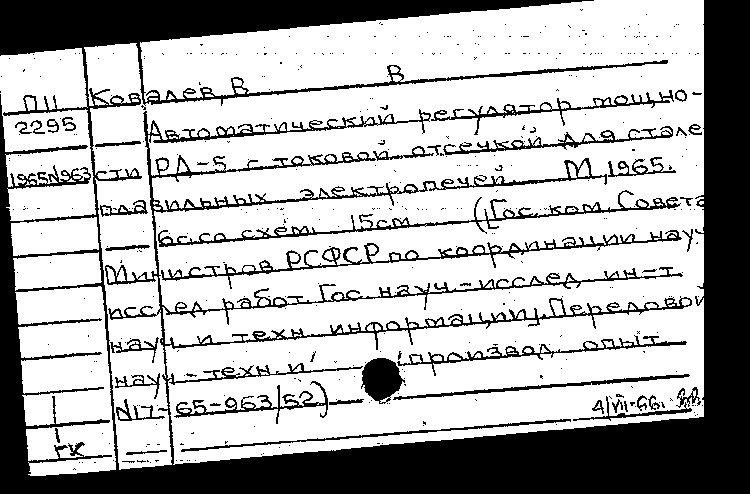 П11 Ковалев, В В
2295 Автоматический регулятор мощно-
1965N963 сти РД-5 с токовой отсечкой для стале
плавильных электропечей. М, 1965.
6с. со схем. 15см ([Гос. ком. Совета
Министров РСФСР по координации науч
исслед работ. Гос. науч-исслед. ин-т
науч и техн. информации]. Передовой
науч-техн. и производ. опыт
N17-65-963/52)
4/VII-66.
ГК